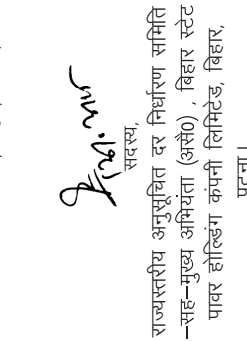 सदस्य,
राज्यस्तरीय अनुसूचित दर निर्धारण समिति
–सह–मुख्य अभियंता (असै0) , बिहार स्टेट
पावर होल्डिंग कंपनी लिमिटेड, बिहार,
पटना।